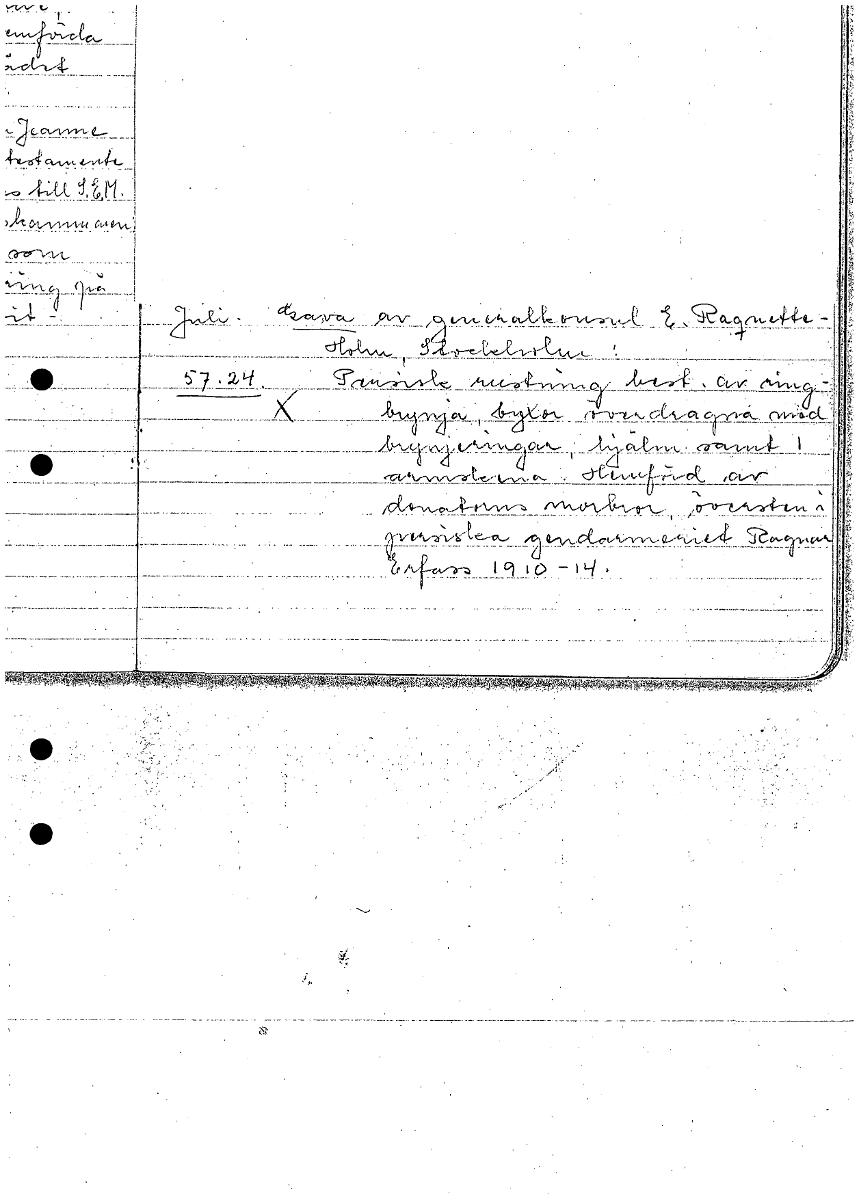 emförda
ädet
Jeanne
testamente
till S.E.M.
kammaren
som
ring på
it -
Juli. Gåva av generalkonsul E. Raquette-
Holm, Stockholm:
57.24. Persisk rustning best. av ring-
X brynja, byxor överdragna med
brynjeringar, hjälm samt 1
armskena. Hemförd av
donatorns morbror, översten i
persiska gendarmeriet Ragnar
Erfass 1910-14.